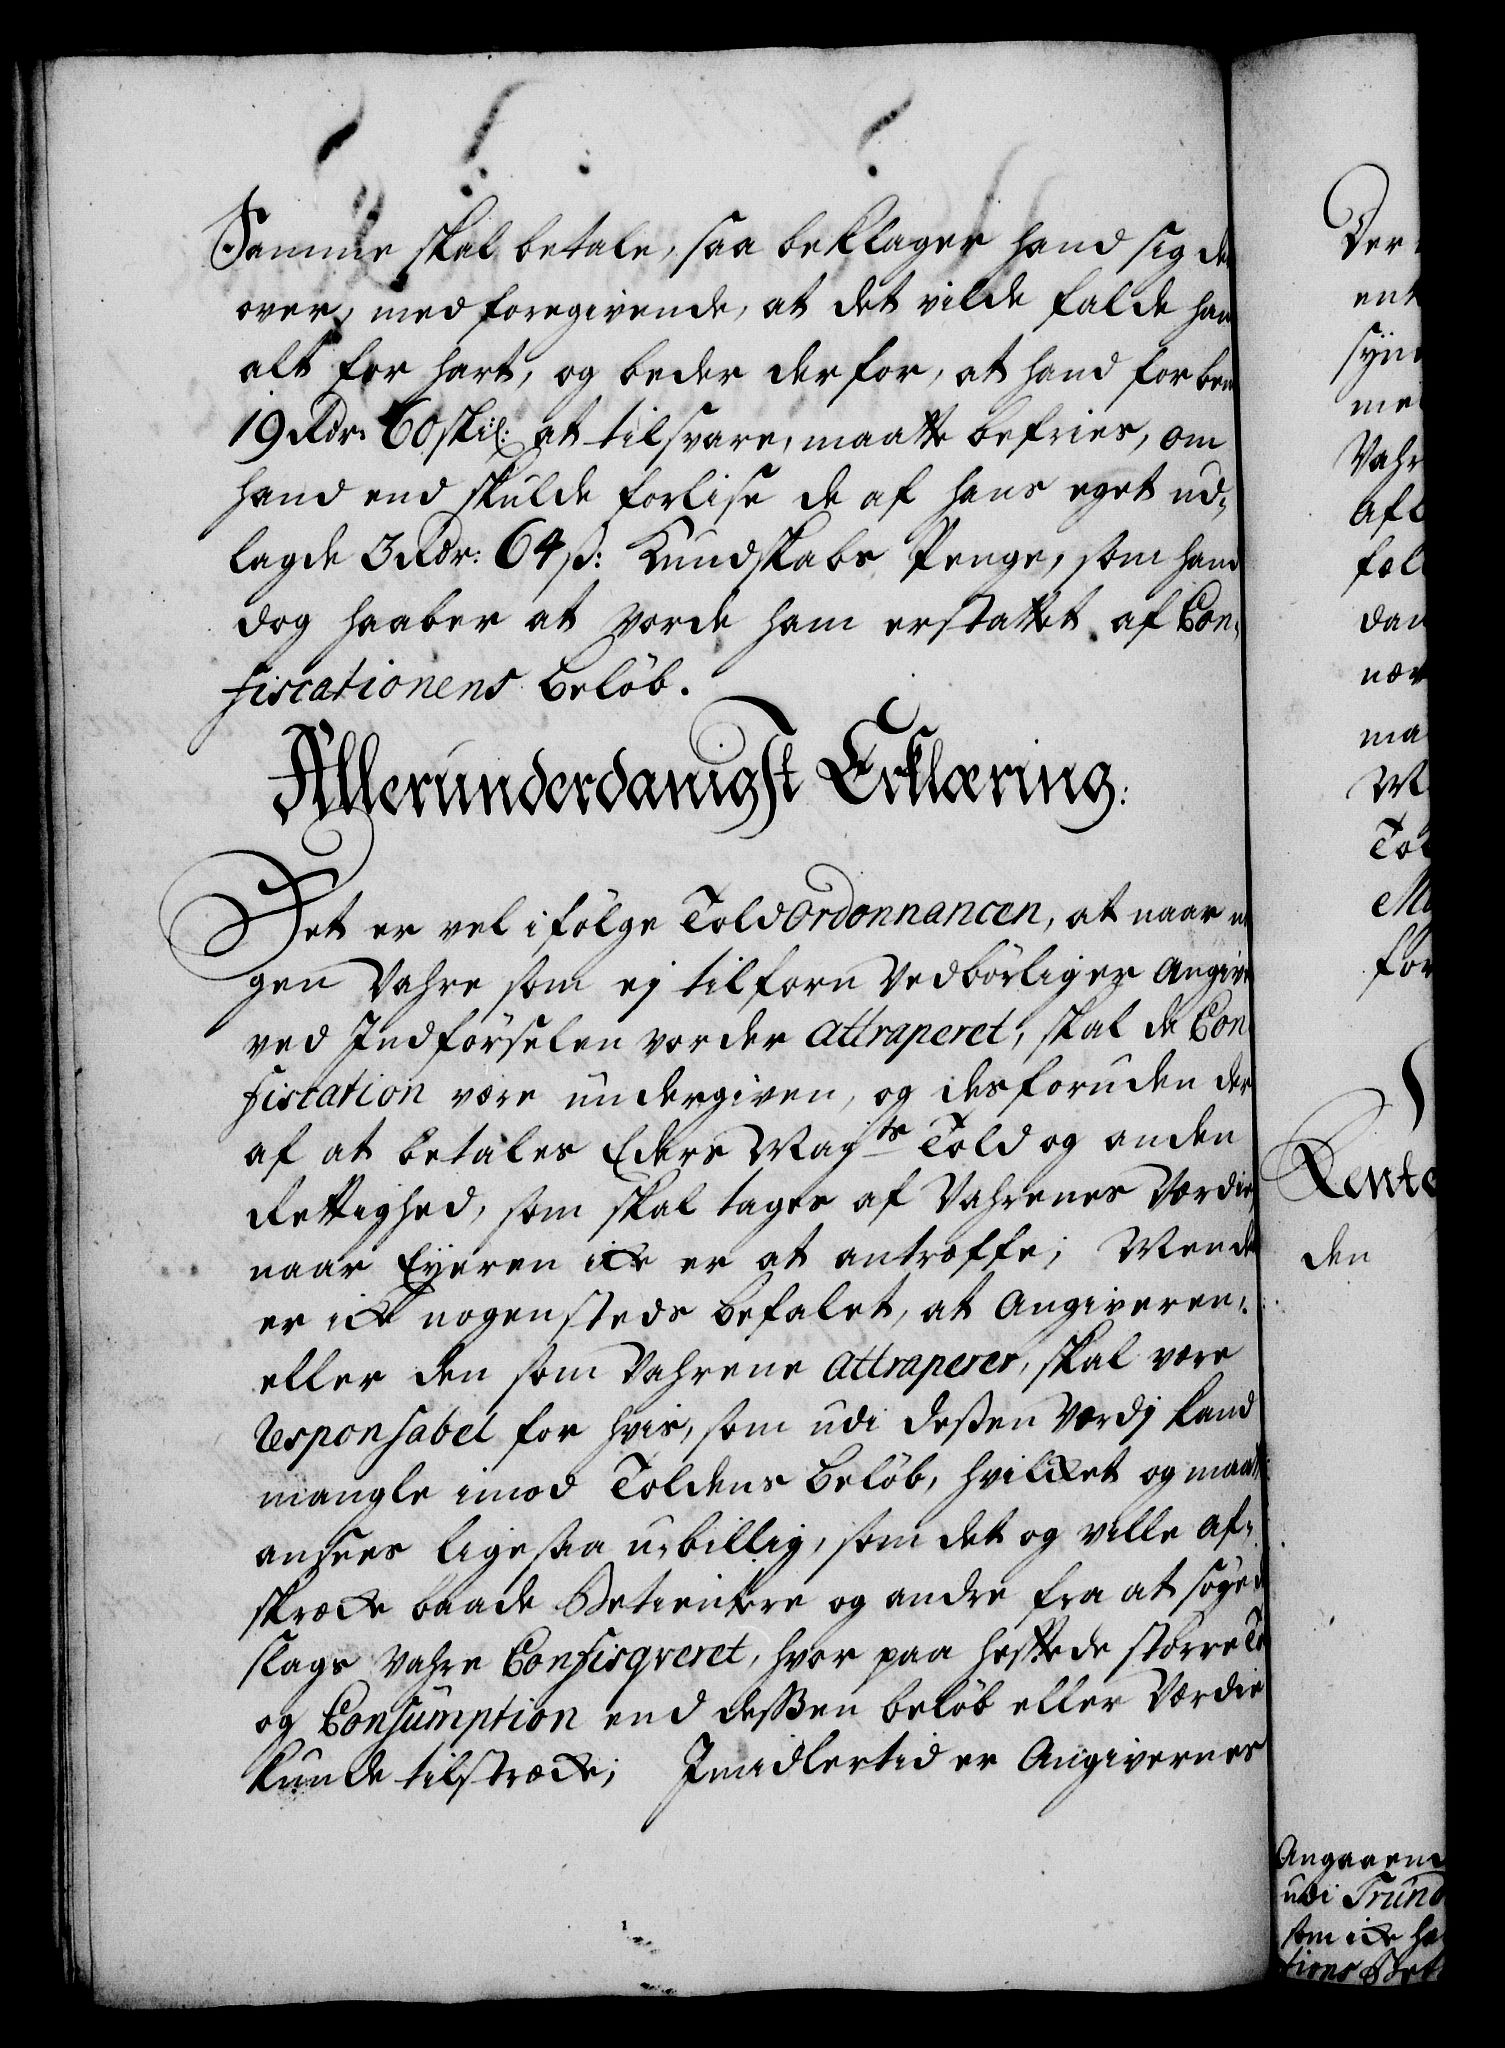 Samme skal betale, saa beklager hand sig der
over, med foregivende, at det vilde falde ham
alt for hart, og beder derfor, at hand for bem
19 Rdr. 60 skil: at tilsvare, maatte befries, om
hand end skulde forlise de af hans eget ud-
lagde 3 Rdr: 64 ß: Kundskabs Penge, som hand
dog haaber at vorde ham erstattet af Con-
fiscationens beløb.
Allerunderdanigst Erklæring:
Det er vel ifølge Told Ordonnancen, at naar no
gen Vahre som ej tilforn Vedbørliger Angiv
ved Indførselen vorder attraperet, skal de Con
fiscation være undergiven, og desforuden der
af at betales Eders Mayts Told og anden
Rettighed, som skal tages af Vahrenes Værdie,
naar Eyeren icke er at antræffe; Men de
er icke nogensteds befalet, at Angiveren
eller den som Vahrene attraperer, skal være
responsabel for hvis, som udi dessen Værdj kand
mangle imod Toldens beløb, hvilcket og maatte
ansees ligesaa u-billig, som det og ville af-
skrække baade Betientere og andre fra at søge d
slags Vahre Confisqveret, hvor paa heftede større To
og Consumption end dessen beløb eller Værdie
kunde tilstrække; Imidlertid er Angivernes
Der
ent
syn
me
Vahr
Afl
fæl
dan
nær
ma
M
Tol
Ma
for
Rente
den
Angaaen
udi Trund
som icke ha
tions Bet